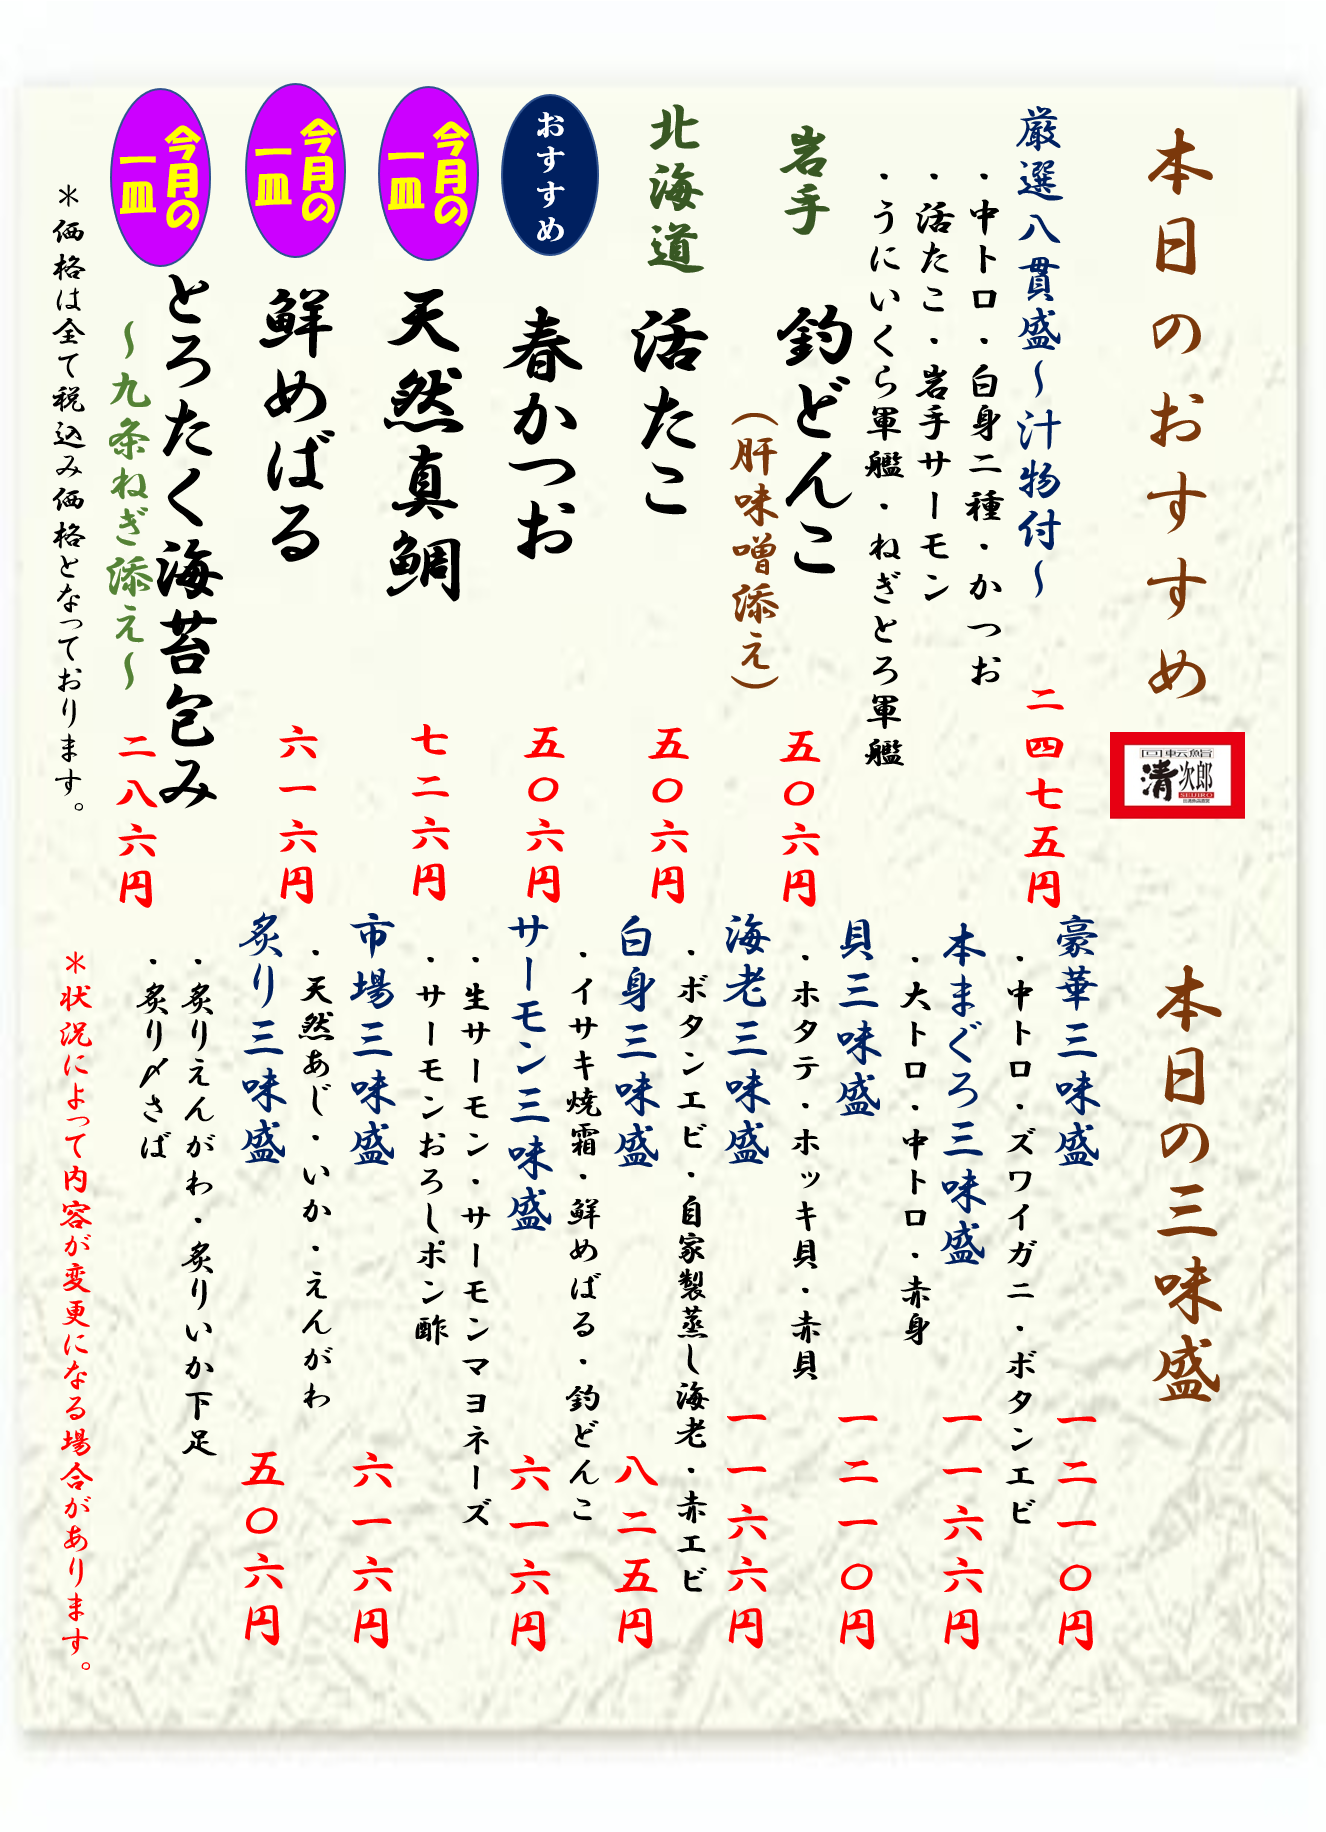 本日のおすすめ
回転鮨
清次郎
SEIJIRO
厳選八貫盛～汁物付～
二四七五円
・中トロ・白身二種・かつお
・活たこ・岩手サーモン
・うにいくら軍艦・ねぎとろ軍艦
岩手
釣どんこ
（肝味噌添え）
五〇六円
北海道
活たこ
五〇六円
おすすめ
春かつお
五〇六円
今月の
一皿
天然真鯛
七二六円
今月の
一皿
鮮めばる
六一六円
今月の
一皿
とろたく海苔包み
～九条ねぎ添え～
二八六円
＊価格は全て税込み価格となっております。
本日の三味盛
豪華三味盛
一二一〇円
・中トロ・ズワイガニ・ボタンエビ
本まぐろ三味盛
一一六六円
・大トロ・中トロ・赤身
貝三味盛
一二一〇円
・ホタテ・ホッキ貝・赤貝
海老三味盛
一一六六円
・ボタンエビ・自家製蒸し海老・赤エビ
白身三味盛
八二五円
・イサキ焼霜・鮮めばる・釣どんこ
サーモン三味盛
六一六円
・生サーモン・サーモンマヨネーズ
・サーモンおろしポン酢
市場三味盛
六一六円
・天然あじ・いか・えんがわ
炙り三味盛
五〇六円
・炙りえんがわ・炙りいか下足
・炙り〆さば
＊状況によって内容が変更になる場合があります。